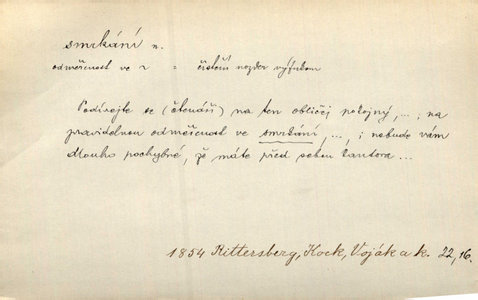 smrkání n.
odměřenost ve s = čistění nozder výfukem
Podívejte se (čtenáři) na ten obličej pokojný, ... ; na
pravidelnou odměřenost ve smrkání, ..., ; i nebude vám
dlouho pochybné, že máte před sebou kantora ...
1854 Rittersberg, Kock, Voják a k. 22,16.